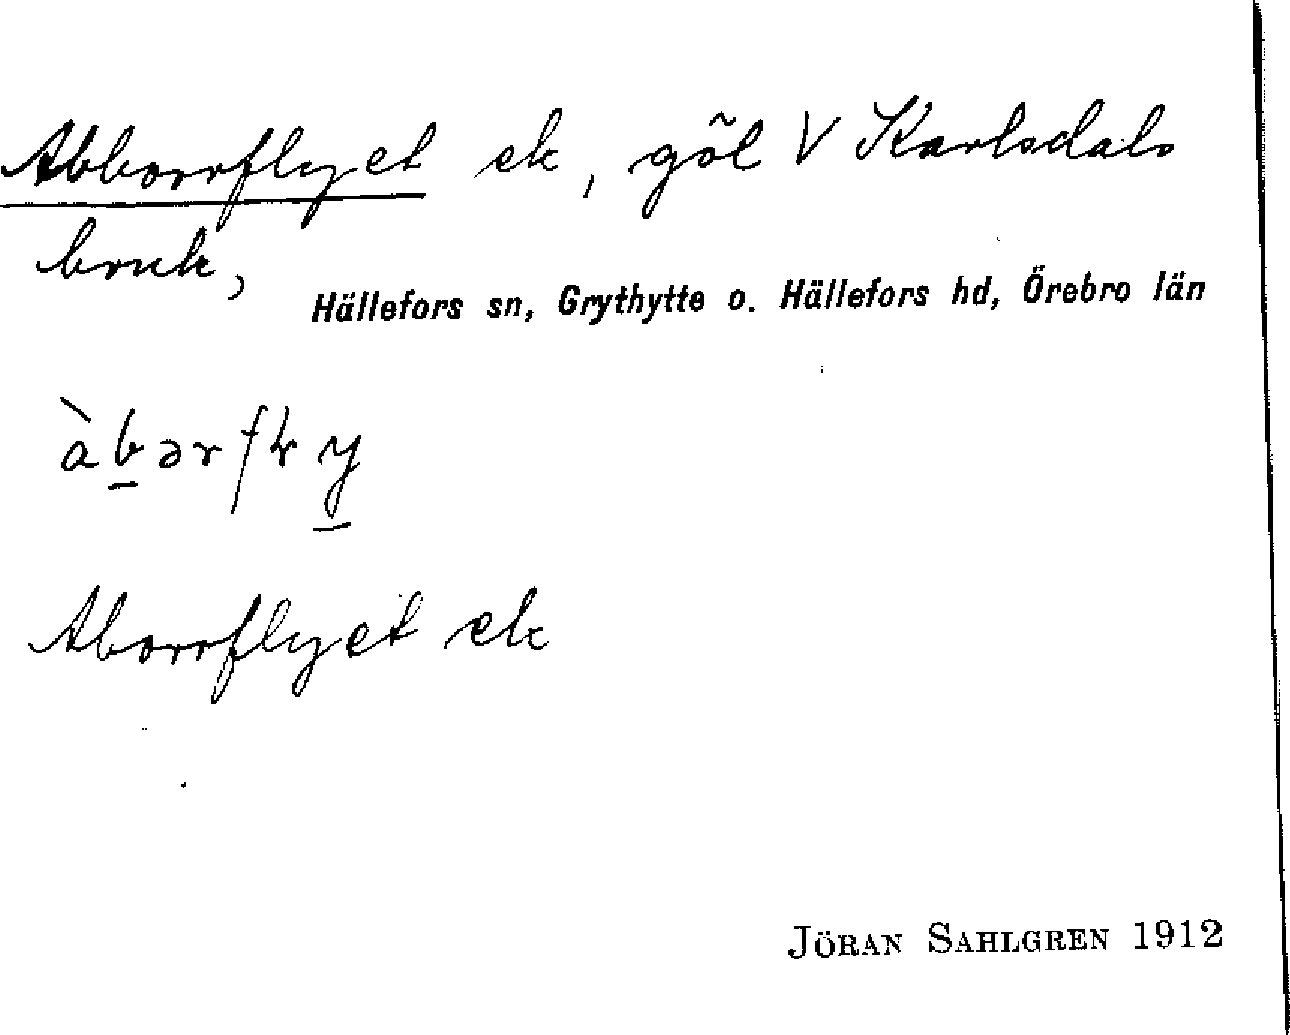 Abborrflyet ek, göl V Karlsdals
bruk,
Hällefors sn, Grythytte o. Hällefors hd, Örebro län
àbərfɫy
Aborrflyet ek
JÖRAN SAHLGREN 1912